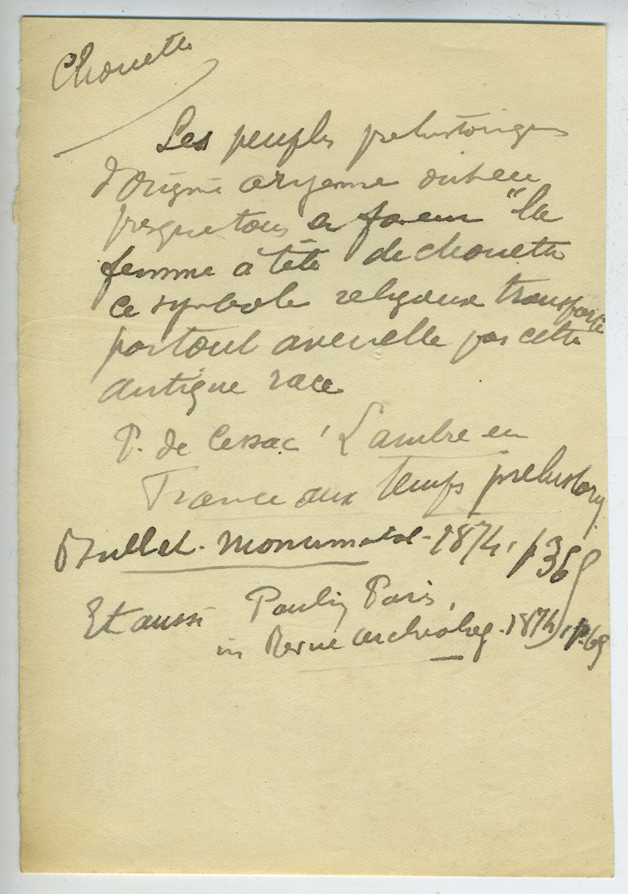 Chouette
Les peuples prehistoriques
d'origine aryenne ont eu
presque tous "la
femme à tête de chouette
ce symbole religieux transporté
partout avec elle par cette
antique race
P. de Cessac "L'ambre en
France aux temps prehistoriq
Bullet. Monumental - 1874, p 36
Et aussi Paulin Paris,
in Revue archéolog. 1874, p. 69